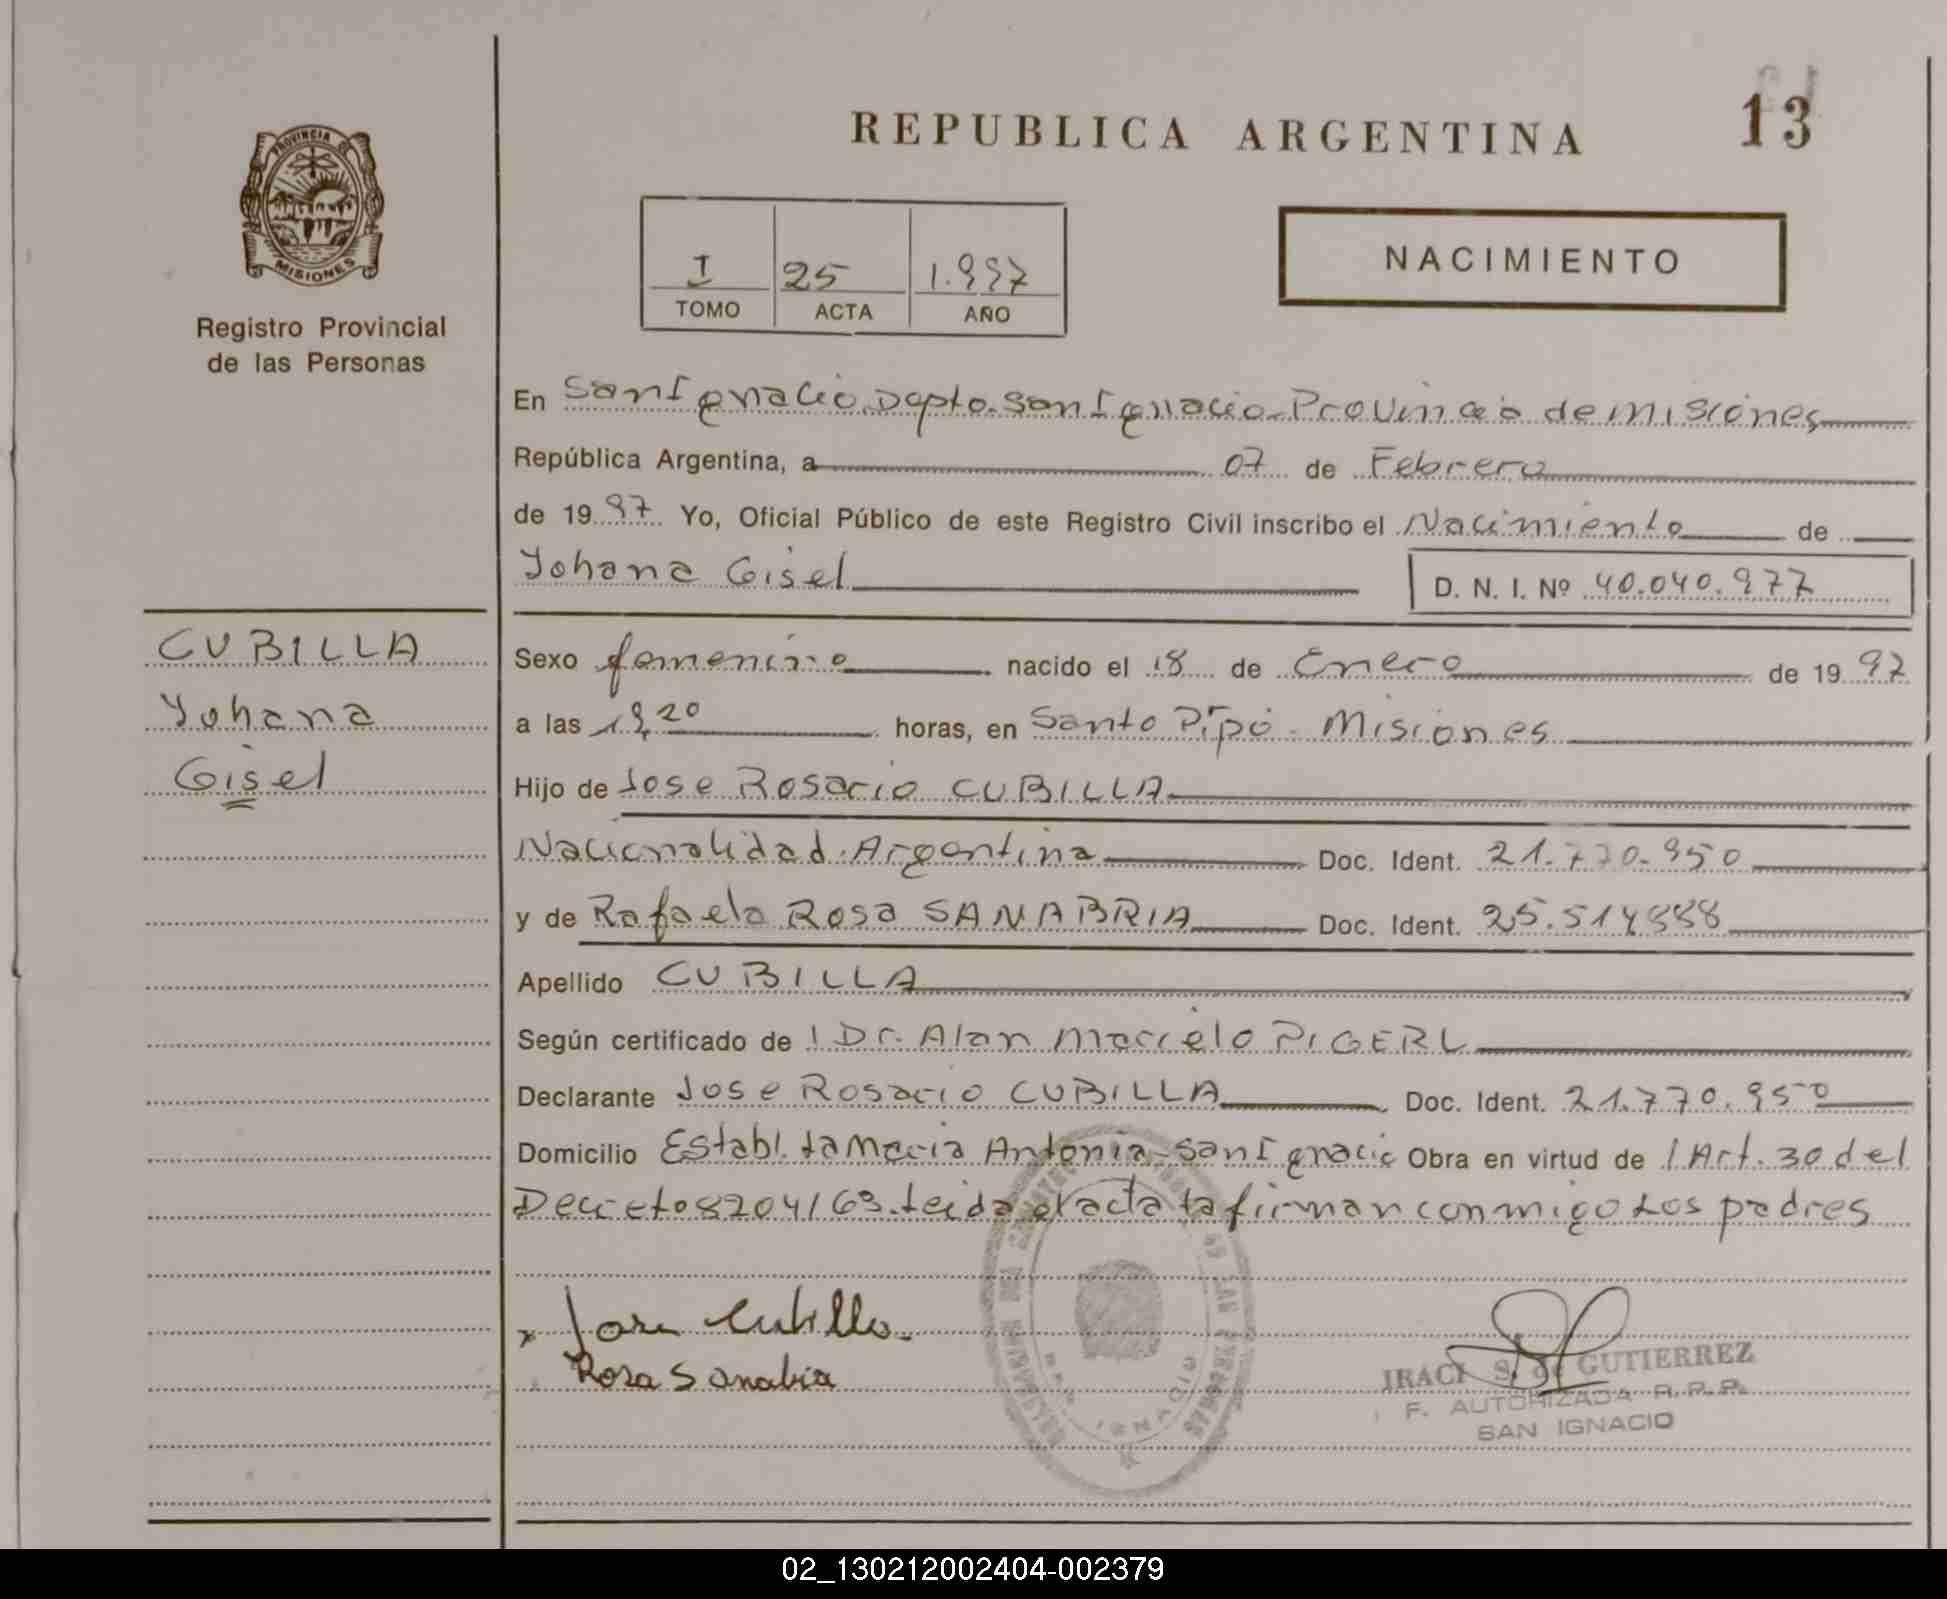 REPUBLICA ARGENTINA
13
PROVINCIA DE
MISIONES
Registro Provincial
de las Personas
I 25 1.997
TOMO ACTA AÑO
NACIMIENTO
En San Ignacio, Dapto. San Ignacio - Provincia de Misiones
República Argentina, a 07 de Febrero
de 1997 Yo, Oficial Público de este Registro Civil inscribo el Nacimiento de
Yohana Gisel D. N. I. Nº 40.040.977
CUBILLA
Yohana
Gisel
Sexo femenino nacido el 18 de Enero de 1997
a las 19,20 horas, en Santo Pipó - Misiones
Hijo de Jose Rosario CUBILLA
Nacionalidad Argentina Doc. Ident. 21.770.950
y de Rafaela Rosa SANABRIA Doc. Ident.
Apellido CUBILLA
Según certificado de l Dr. Alan Marcelo PIGERL
Declarante Jose Rosario CUBILLA Doc. Ident. 21.770.950
Domicilio Establ. La Maria Antonia - San Ignacio Obra en virtud de l Art. 30 del
Decreto 8204/63. Leida el acta la firman conmigo Los padres
x Jose Cubilla.
Rosa Sanabia
SAN IGNACIO
IRACI S. de GUTIERREZ
F. AUTORIZADA R.P.P.
SAN IGNACIO
02_130212002404-002379